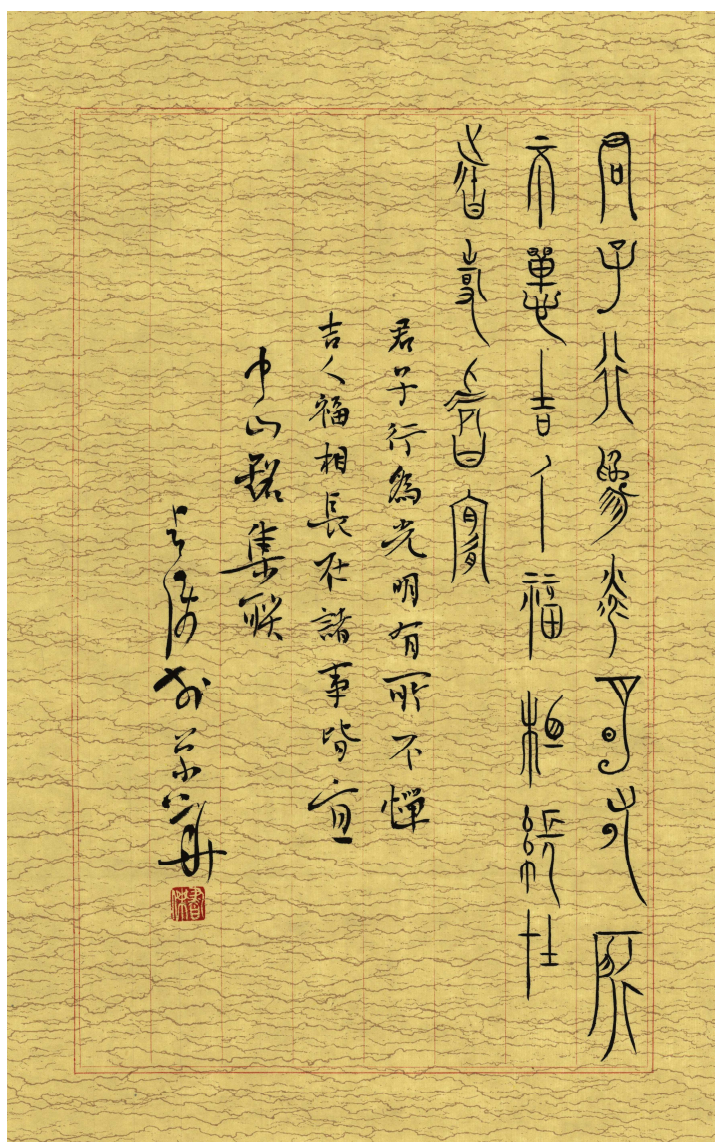 君子行為光明有所
不憚吉人福相長在
諸事皆宜
君子行為光明有所不憚
吉人福相長在諸事皆宜
中山銘集聯
書傑於京華
書傑